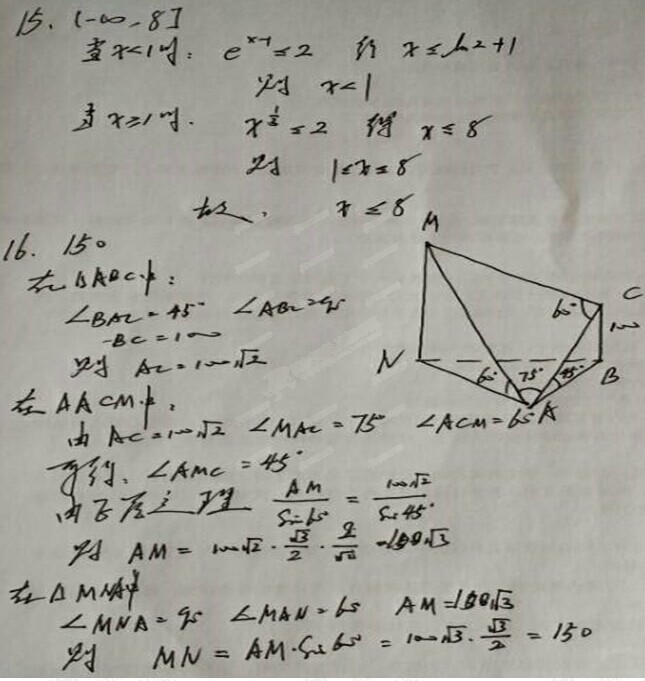 15. (-∞, 8]
当x<1时: e^{x-1}≤2 得 x≤ln2+1
则 x<1
当x≥1时. x^{1/3}≤2 得 x≤8
则 1≤x≤8
故. x≤8
16. 150
在△ABC中:
∠BAC=45° ∠ABC=90°
BC=100
则 AC=100√2
在△ACM中,
由 AC=100√2 ∠MAC=75° ∠ACM=60°
可得, ∠AMC=45°
由正弦定理 AM/Sin60° = 100√2/Sin45°
则 AM=100√2·√3/2·2/√2=100√3
在△MNA中
∠MNA=90° ∠MAN=60° AM=100√3
则 MN=AM·Sin60°=100√3·√3/2=150
M
C
60°
100
N
60°
75°
45°
B
A